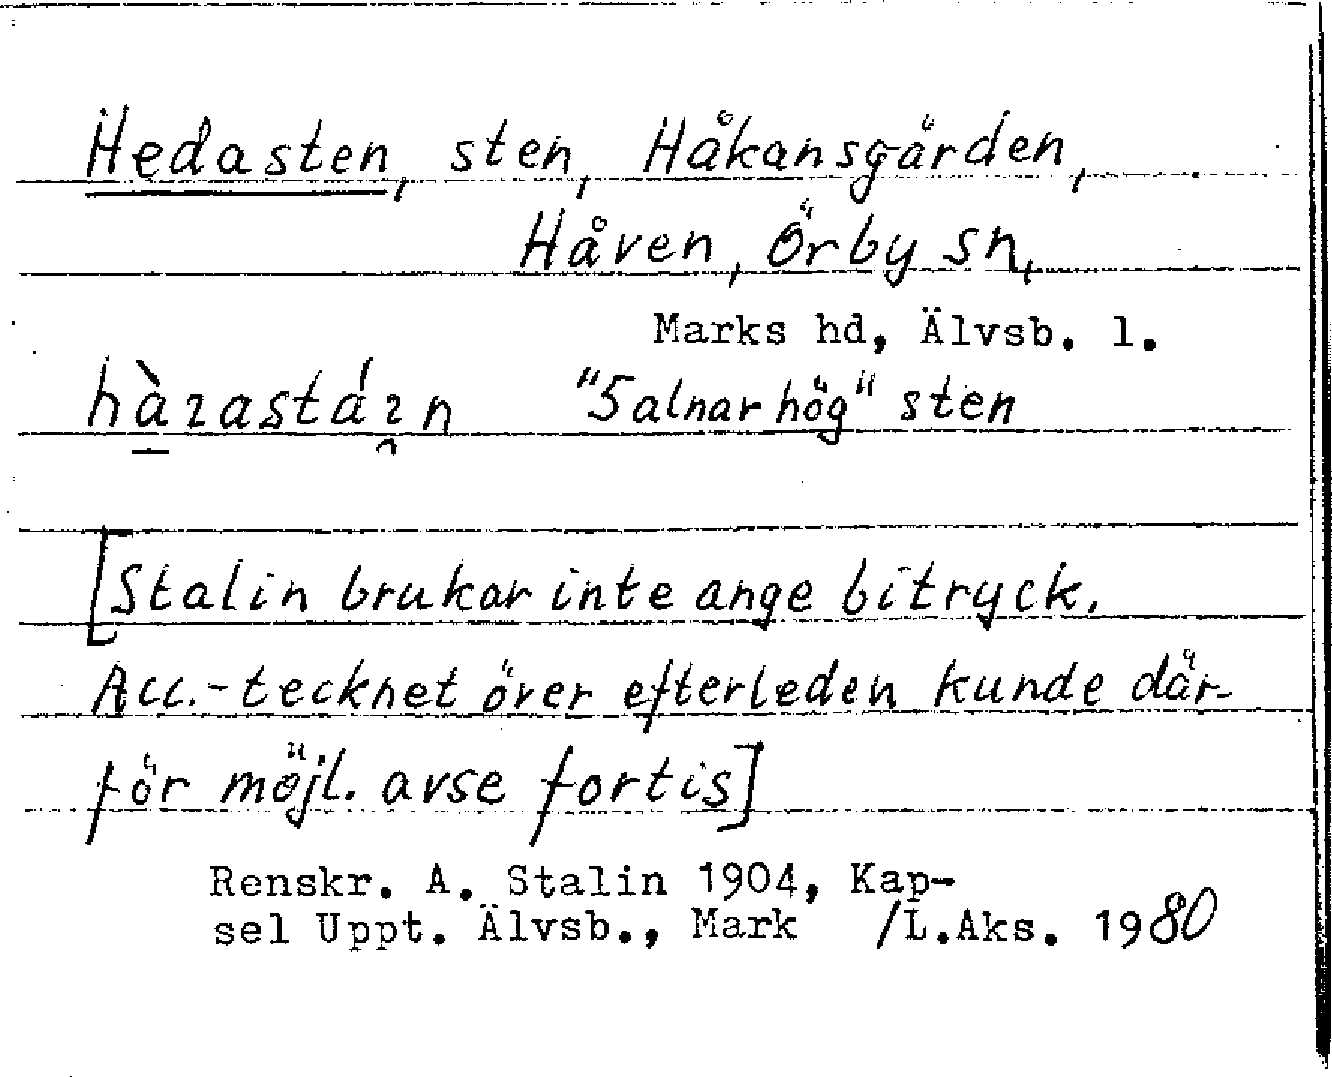 Hedasten, sten, Håkansgården,
Håven, Örby sn,
Marks hd, Älvsb. l.
"5 alnar hög" sten
[Stalin brukar inte ange bitryck.
Acc.-tecknet över efterleden kunde där-
för möjl. avse fortis]
Renskr. A. Stalin 1904, Kap-
sel Uppt. Älvsb., Mark /L.Aks. 1980